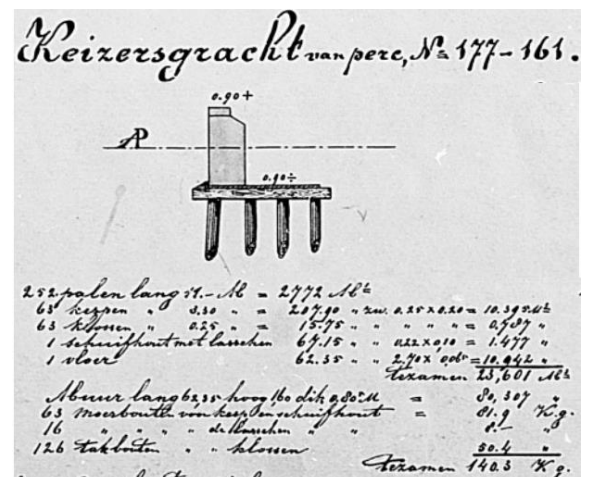 Keizersgracht van perc, No 177-161.
0.90+
AP
0.90÷
252 palen lang 11.- M = 2772 M1
63 kespen " 3.30 " = 207.90 " zw. 0.25 x 0.20 = 10.395 M3
63 klossen " 0.25 " = 15.75 " " " " = 0,787 "
1 schuifhout met lasschen 67.15 " " 0,22 x 0,10 = 1.477 "
1 vloer 62.35 " " 2,70 x 0,065 = 10.942 "
tezamen 23,601 M3
Muur lang 62,35 hoog 1,60 dik 0,80 M = 80,307 "
63 moerbouten voor kesp en schuifhout = 81.9 K.g.
16 " " " de lasschen " " 8.- "
126 takbouten " " klossen 50.4 "
tezamen 140.3 K.g.